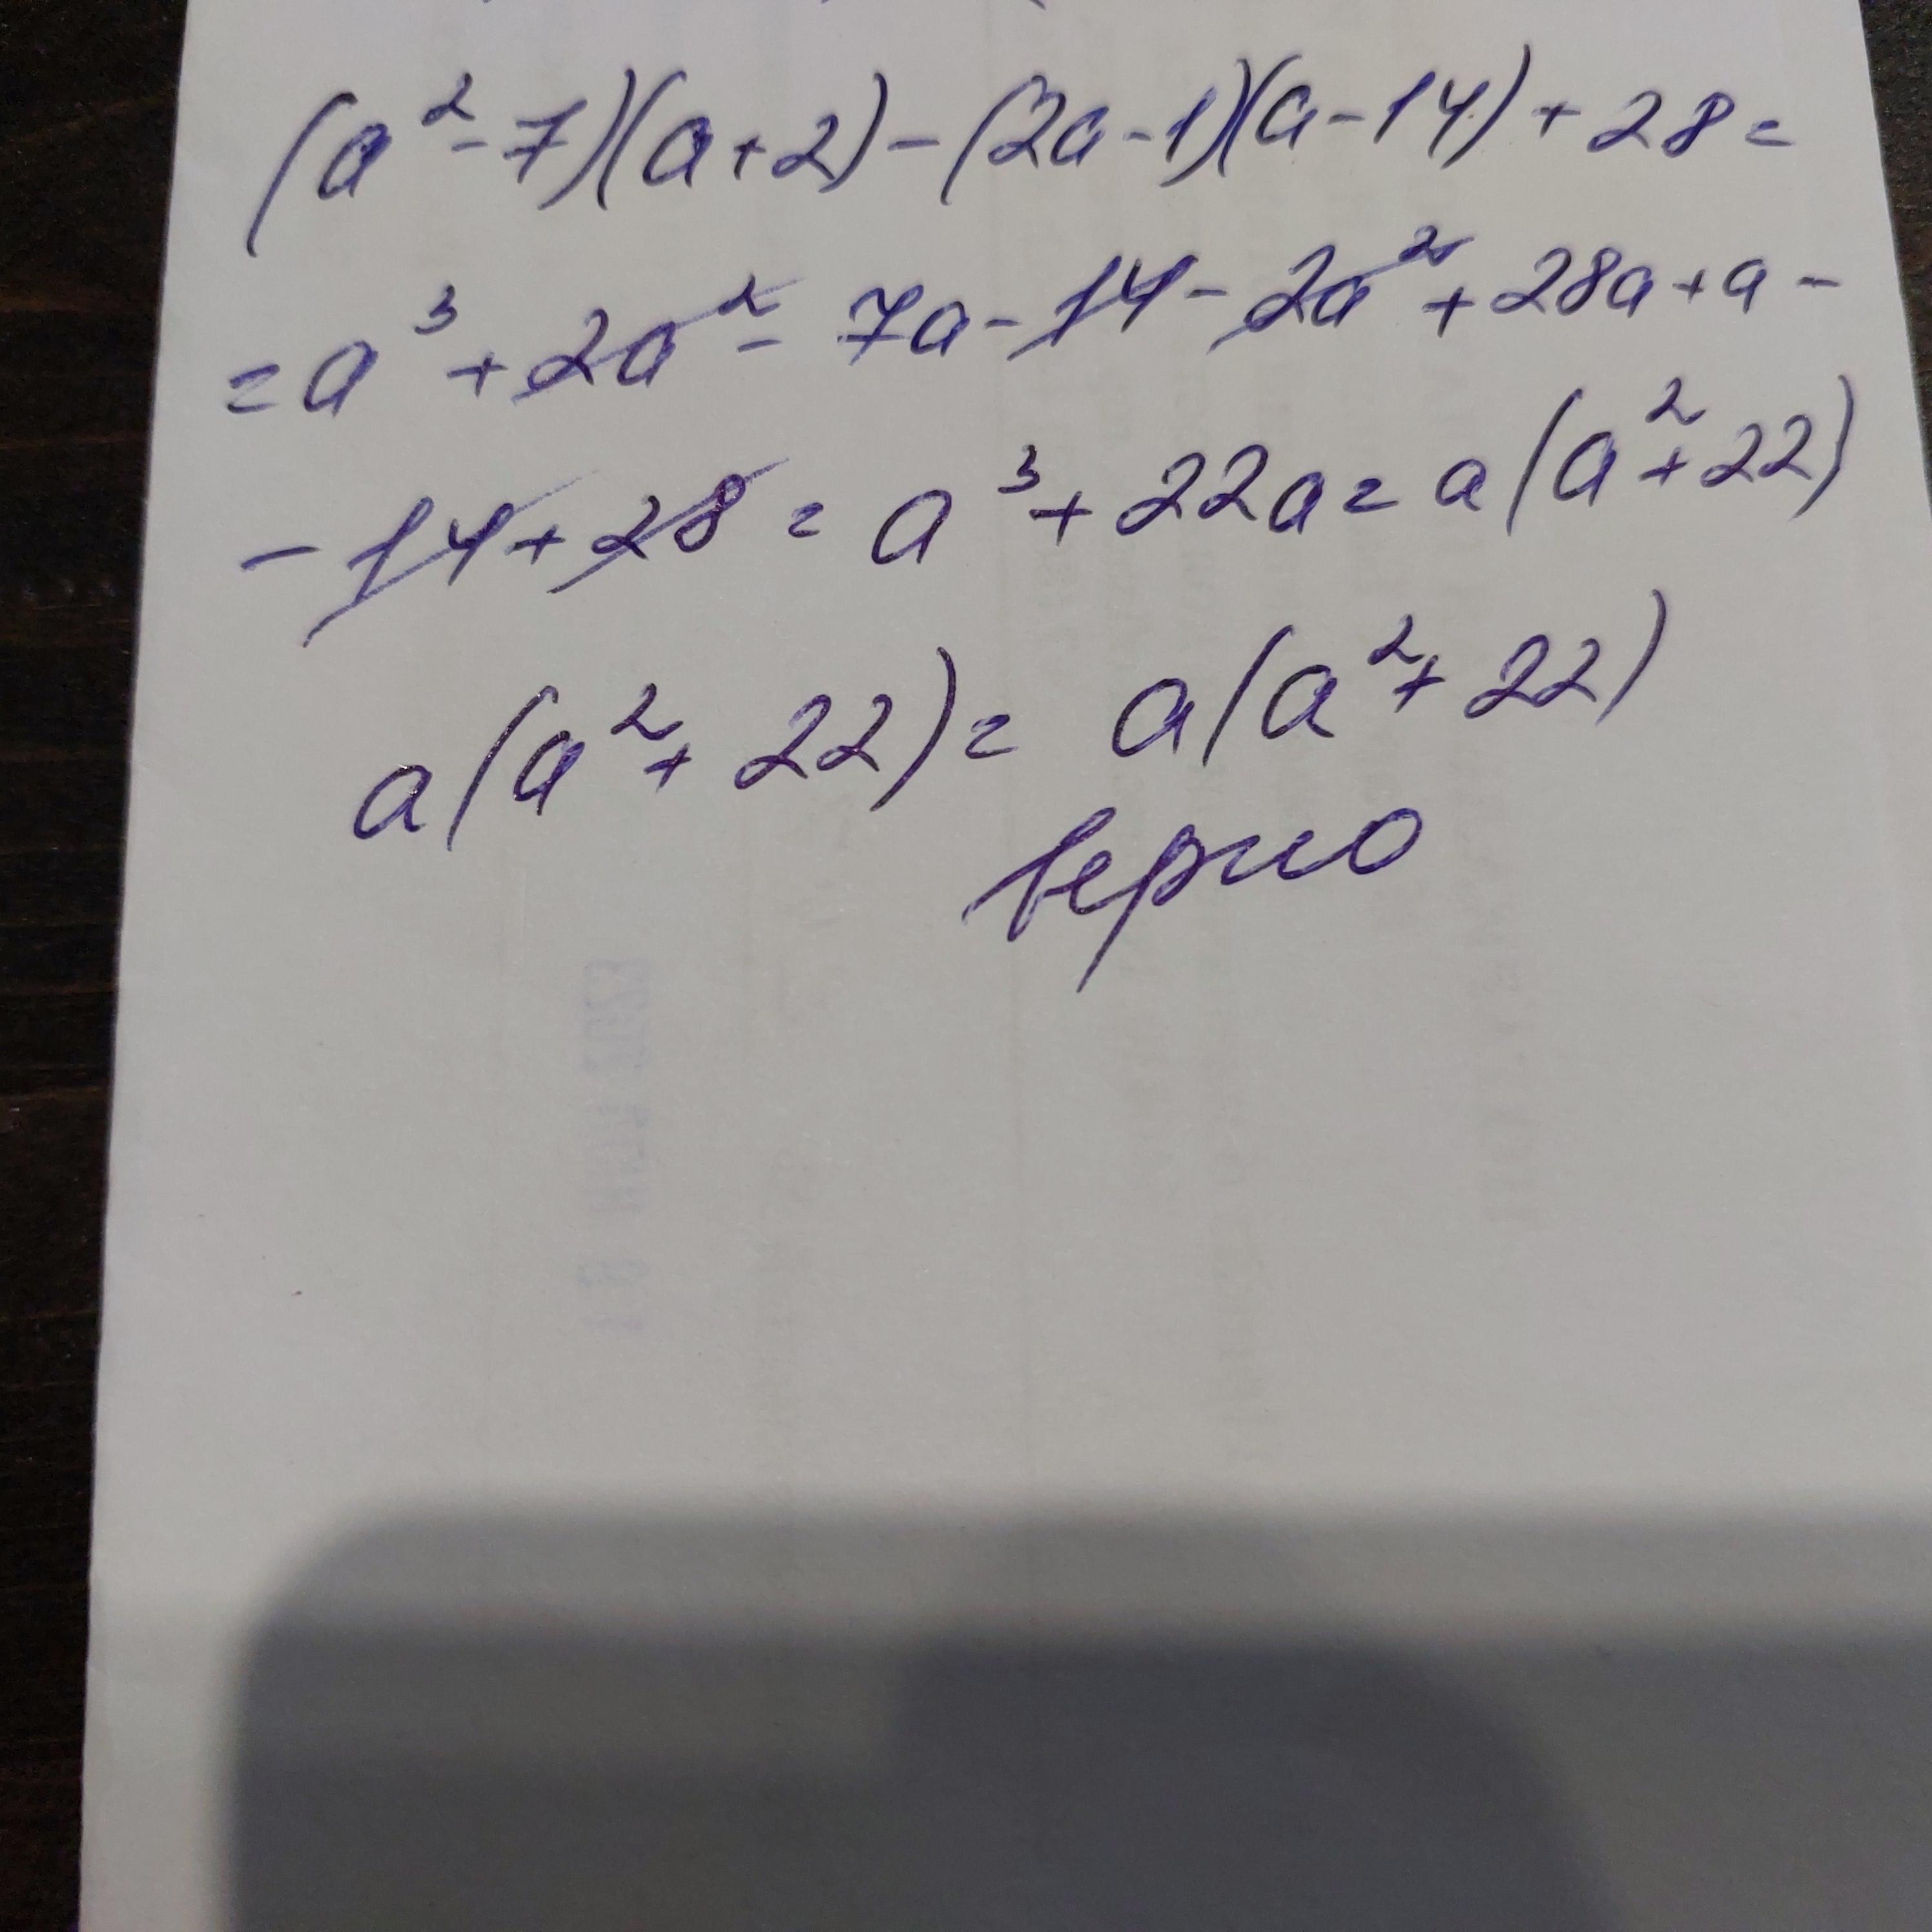 (a²-7)(a+2)-(2a-1)(a-14)+28=
=a³+2a²-7a-14-2a²+28a+a-
-14+28=a³+22a=a(a²+22)
a(a²+22)=a(a²+22)
верно